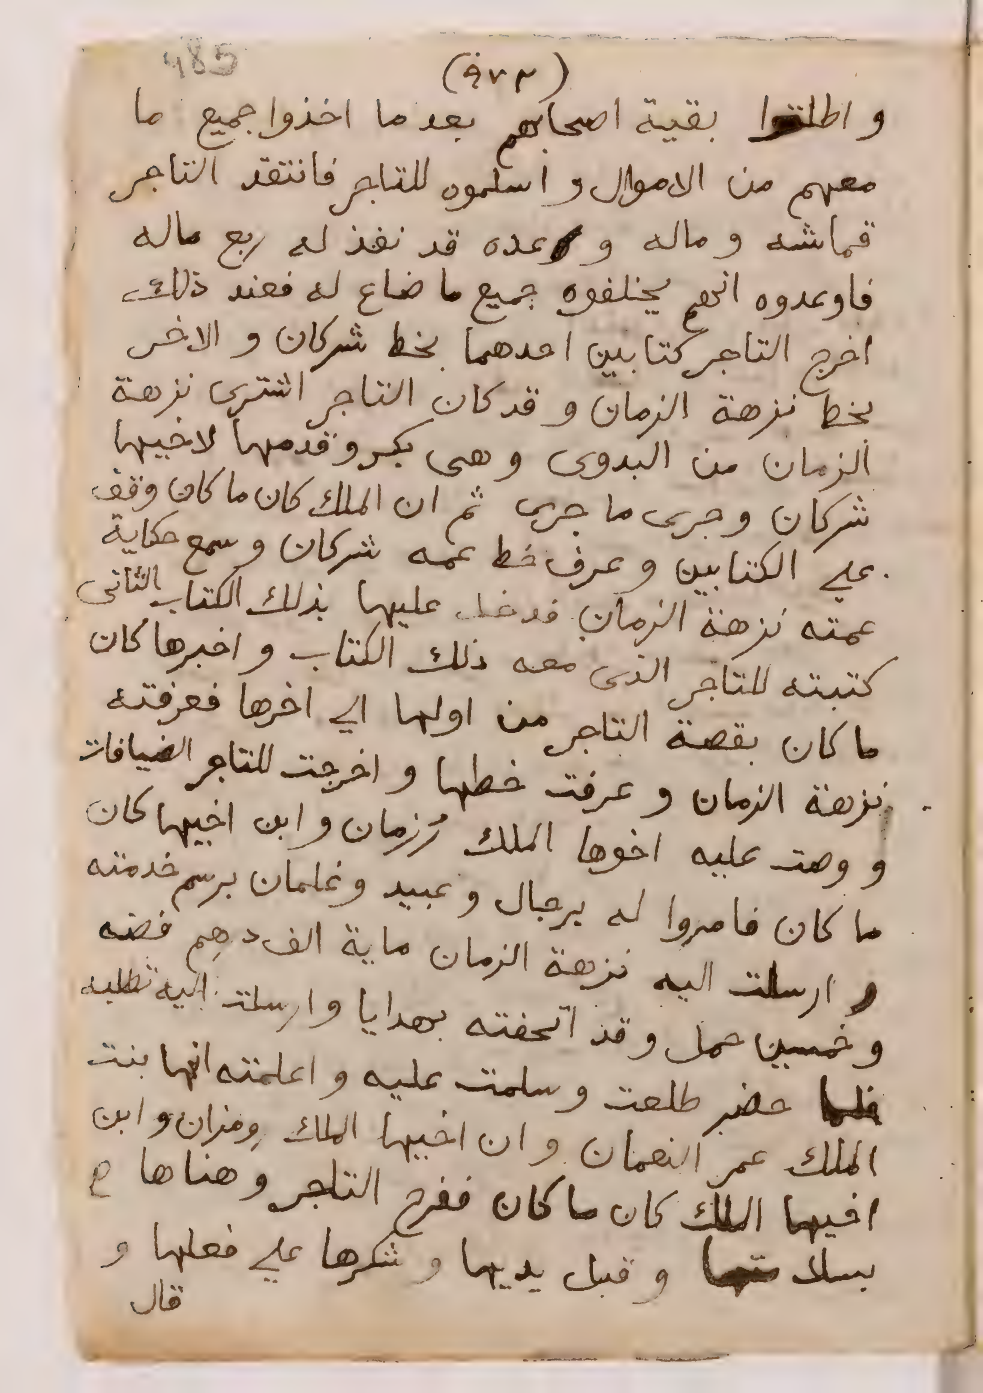 485
(٩٧٣)
و اطلقوا بقية اصحابهم بعد ما اخذوا جميع ما
معهم من الاموال و اسلموه للتاجر فانتقد التاجر
قماشه و ماله و عده قد نفذ له ربع ماله
فاوعدوه انهم يخلفوه جميع ما ضاع له فعند ذلك
اخرج التاجر كتابين احدهما بخط شركان و الاخر
بخط نزهة الزمان و قد كان التاجر اشترى نزهة
الزمان من البدوى و هى بكر و قدمها لاخيها
شركان و جرى ما جرى ثم ان الملك كان ما كان وقف
على الكتابين و عرف خط عمه شركان و سمع حكاية
عمته نزهة الزمان فدخل عليها بذلك الكتاب الثانى
كتبته للتاجر الذى معه ذلك الكتاب و اخبرها كان
ما كان بقصة التاجر من اولها الى اخرها فعرفته
نزهة الزمان و عرفت خطها و اخرجت للتاجر الضيافات
و وصت عليه اخوها الملك رزمان و ابن اخيها كان
ما كان فامروا له برجال و عبيد و غلمان برسم خدمته
و ارسلت اليه نزهة الزمان ماية الف دهم فضه
و خمسين حمل و قد اتحفته بهدايا و ارسلت اليه تطلبه
فلما حضر طلعت و سلمت عليه و اعلمته انها بنت
الملك عمر النعمان و ان اخيها الملك ومزان و ابن
اخيها الملك كان ما كان ففرح التاجر و هناها
بسلامتها و قبل يديها و شكرها على فعلها و
قال